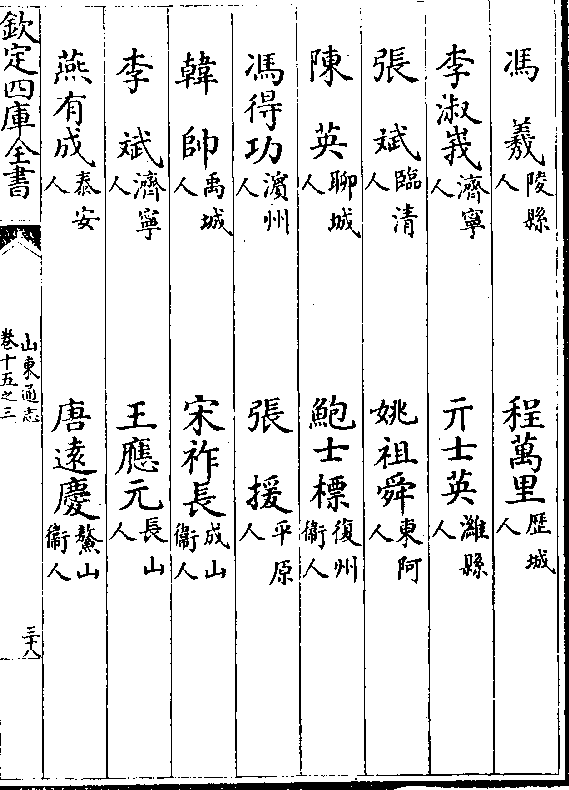 馮羲陵縣人　程萬里歷城人
李淑峩濟寧人　亓士英濰縣人
張斌臨清人　姚祖舜東阿人
陳英聊城人　鮑士標復州衛人
馮得功濵州人　張援平原人
韓帥禹城人　宋祚長成山衛人
李斌濟寧人　王應元長山人
燕有成泰安人　唐遠慶鰲山衛人
欽定四庫全書
山東通志
卷十五之三
三十八